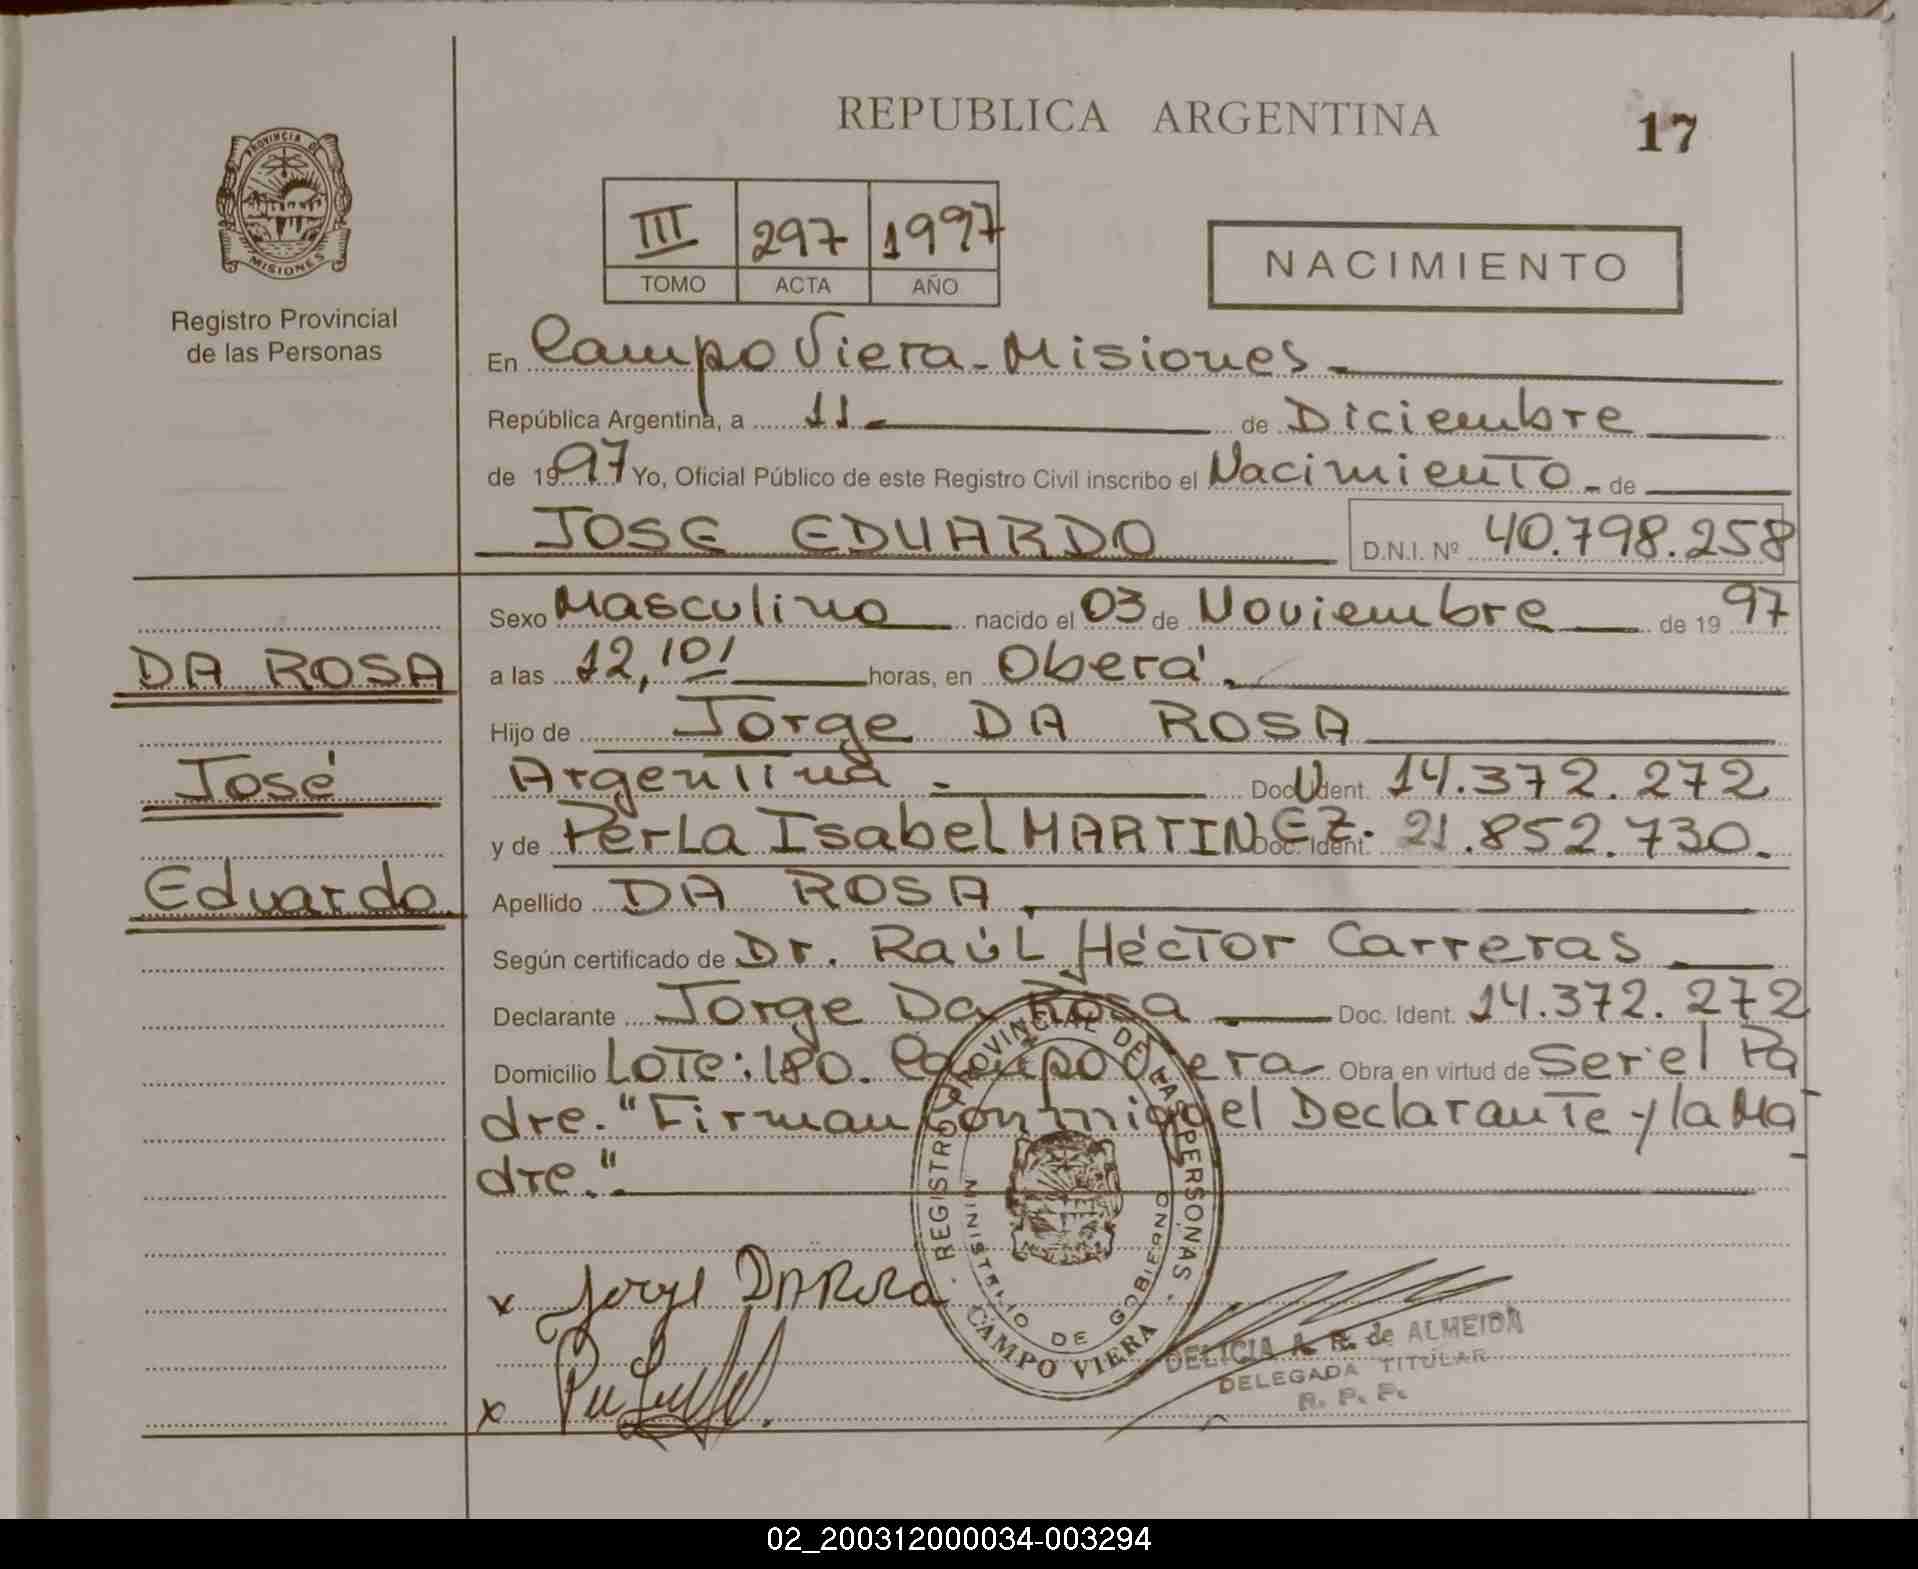 REPUBLICA ARGENTINA
17
PROVINCIA DE
MISIONES
Registro Provincial
de las Personas
III 297 1997
TOMO ACTA AÑO
NACIMIENTO
En Campo Viera - Misiones
República Argentina, a 11 de Diciembre
de 1997 Yo, Oficial Público de este Registro Civil inscribo el Nacimiento de
JOSE EDUARDO D.N.I. Nº 40.798.258
DA ROSA
José
Eduardo.
Sexo Masculino nacido el 03 de Noviembre de 1997
a las 12,10' horas, en Oberá.
Hijo de Jorge DA ROSA
Argentina - Doc. Ident. 14.372.272
y de Perla Isabel MARTINEZ. Doc. Ident. 21.852.730.
Apellido DA ROSA.
Según certificado de Dr. Raúl Héctor Carreras
Declarante Jorge Da Rosa Doc. Ident. 14.372.272
Domicilio Lote: 180. Campo Viera Obra en virtud de Ser el Pa
dre. "Firman conmigo el Declarante y la Ma
dre."
REGISTRO PROVINCIAL DE LAS PERSONAS
MINISTERIO DE GOBIERNO
CAMPO VIERA
x Jorge DA Rosa
x
DELICIA A. R. de ALMEIDA
DELEGADA TITULAR
R. P. P.
02_200312000034-003294